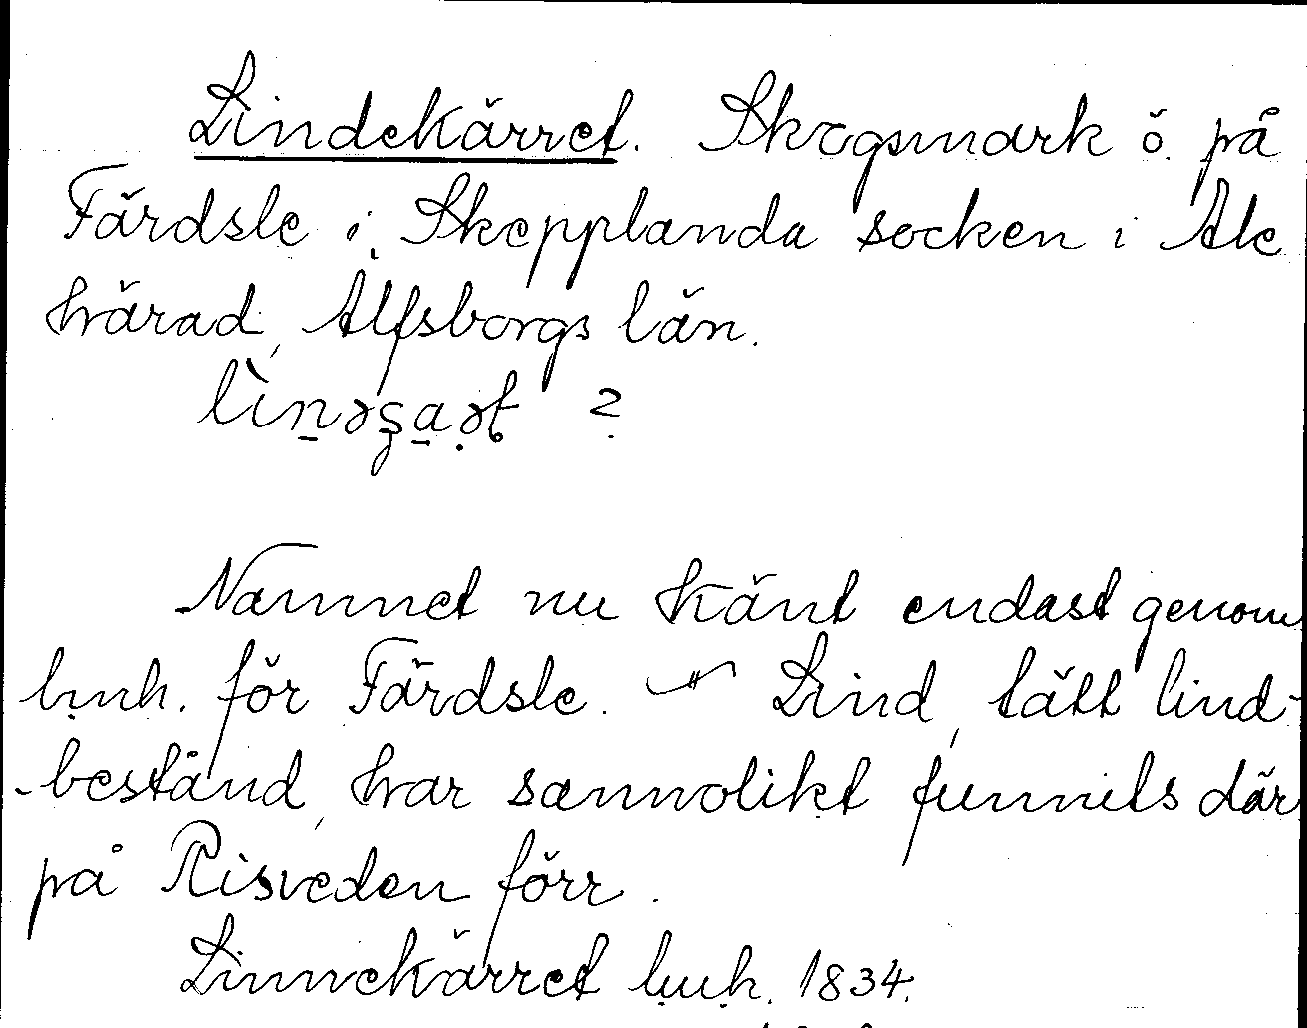 Lindekärret. Skogsmark ö. på
Färdsle i Skepplanda socken i Ale
härad, Älfsborgs län.
Namnet nu känt endast genom
lmh. för Färdsle. – Lind, tätt lind-
bestånd, har sannolikt funnits där
på Risveden förr.
Linnekärret lmh. 1834.